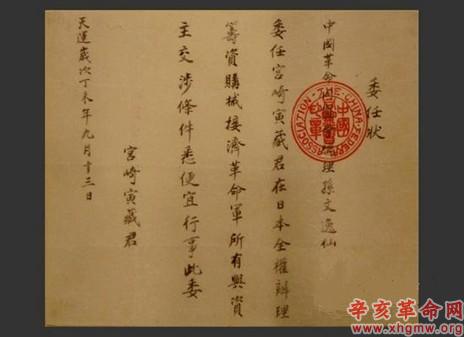 委任状
中國革命同盟會總理孫文逸仙
委任宮崎寅藏君在日本全權辦理
籌資購械接濟革命軍所有與資
主交涉條件悉便宜行事此委
宮崎寅藏君
天運歲次丁未年九月十三日
THE CHINA FEDERAL ASSOCIATION
中國
辛亥革命网
www.xhgmw.org